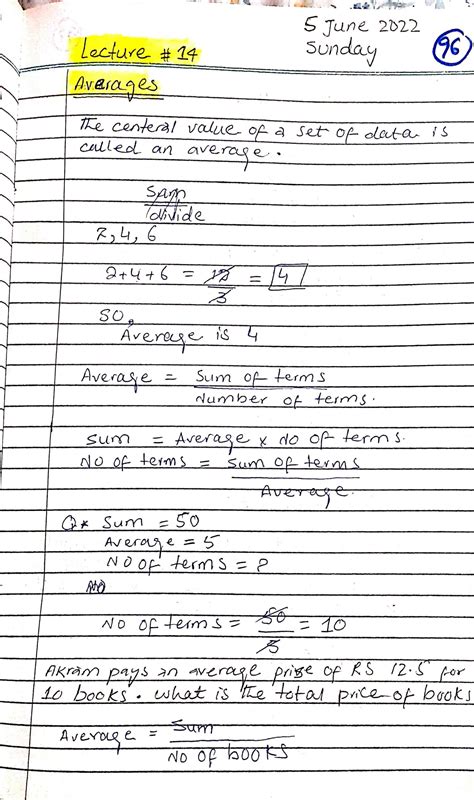 5 June 2022
Sunday
96
Lecture # 14
Averages
The centeral value of a set of data is
called an average.
Sum
divide
2, 4, 6
2+4+6 = 12/3 = 4
So,
Average is 4
Average = Sum of terms
Number of terms.
Sum = Average x No of terms.
No of terms = Sum of terms
Average
Q* Sum = 50
Average = 5
No of terms = ?
No of terms = 50/5 = 10
Akram pays an average prise of RS 12.5 for
10 books. what is the total price of books
Average = Sum
No of books